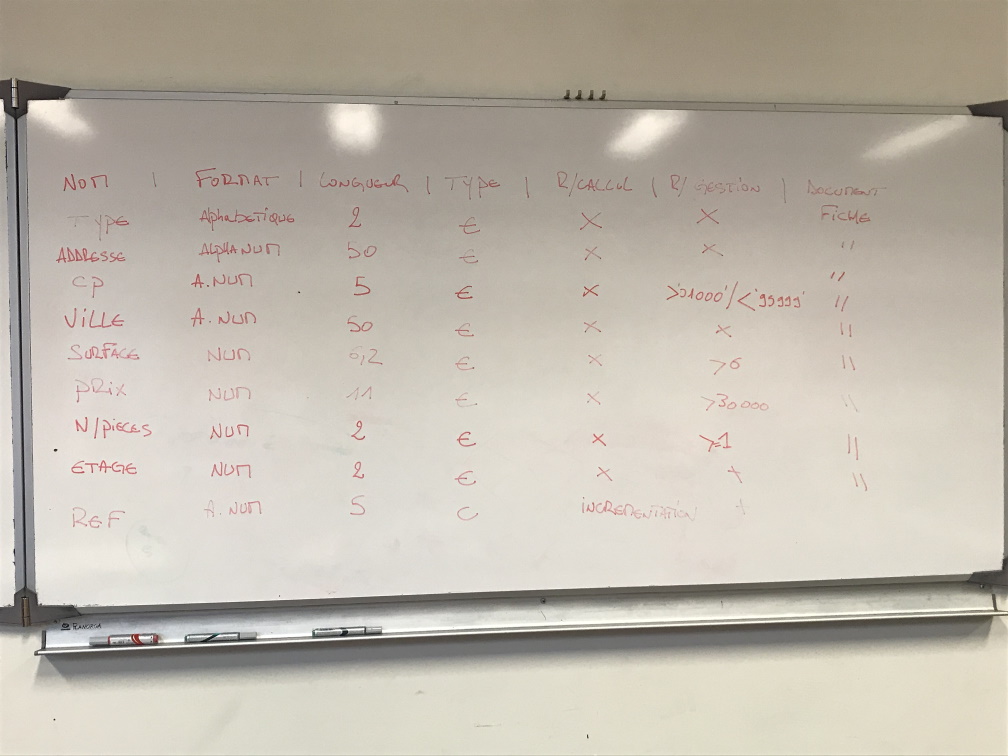 NOM | FORMAT | LONGUEUR | TYPE | R/CALCUL | R/GESTION | DOCUMENT
TYPE Alphabetique 2 € X X FICHE
ADDRESSE ALPHANUM 50 € X X "
CP A.NUM 5 € X >'01000'/<'99999' " "
VILLE A.NUM 50 € X X "
SURFACE NUM 6,2 € X >6 "
PRIX NUM 11 € X >30000 "
N/PIECES NUM 2 € X >=1 "
ETAGE NUM 2 € X X "
REF A.NUM 5 C INCREMENTATION X